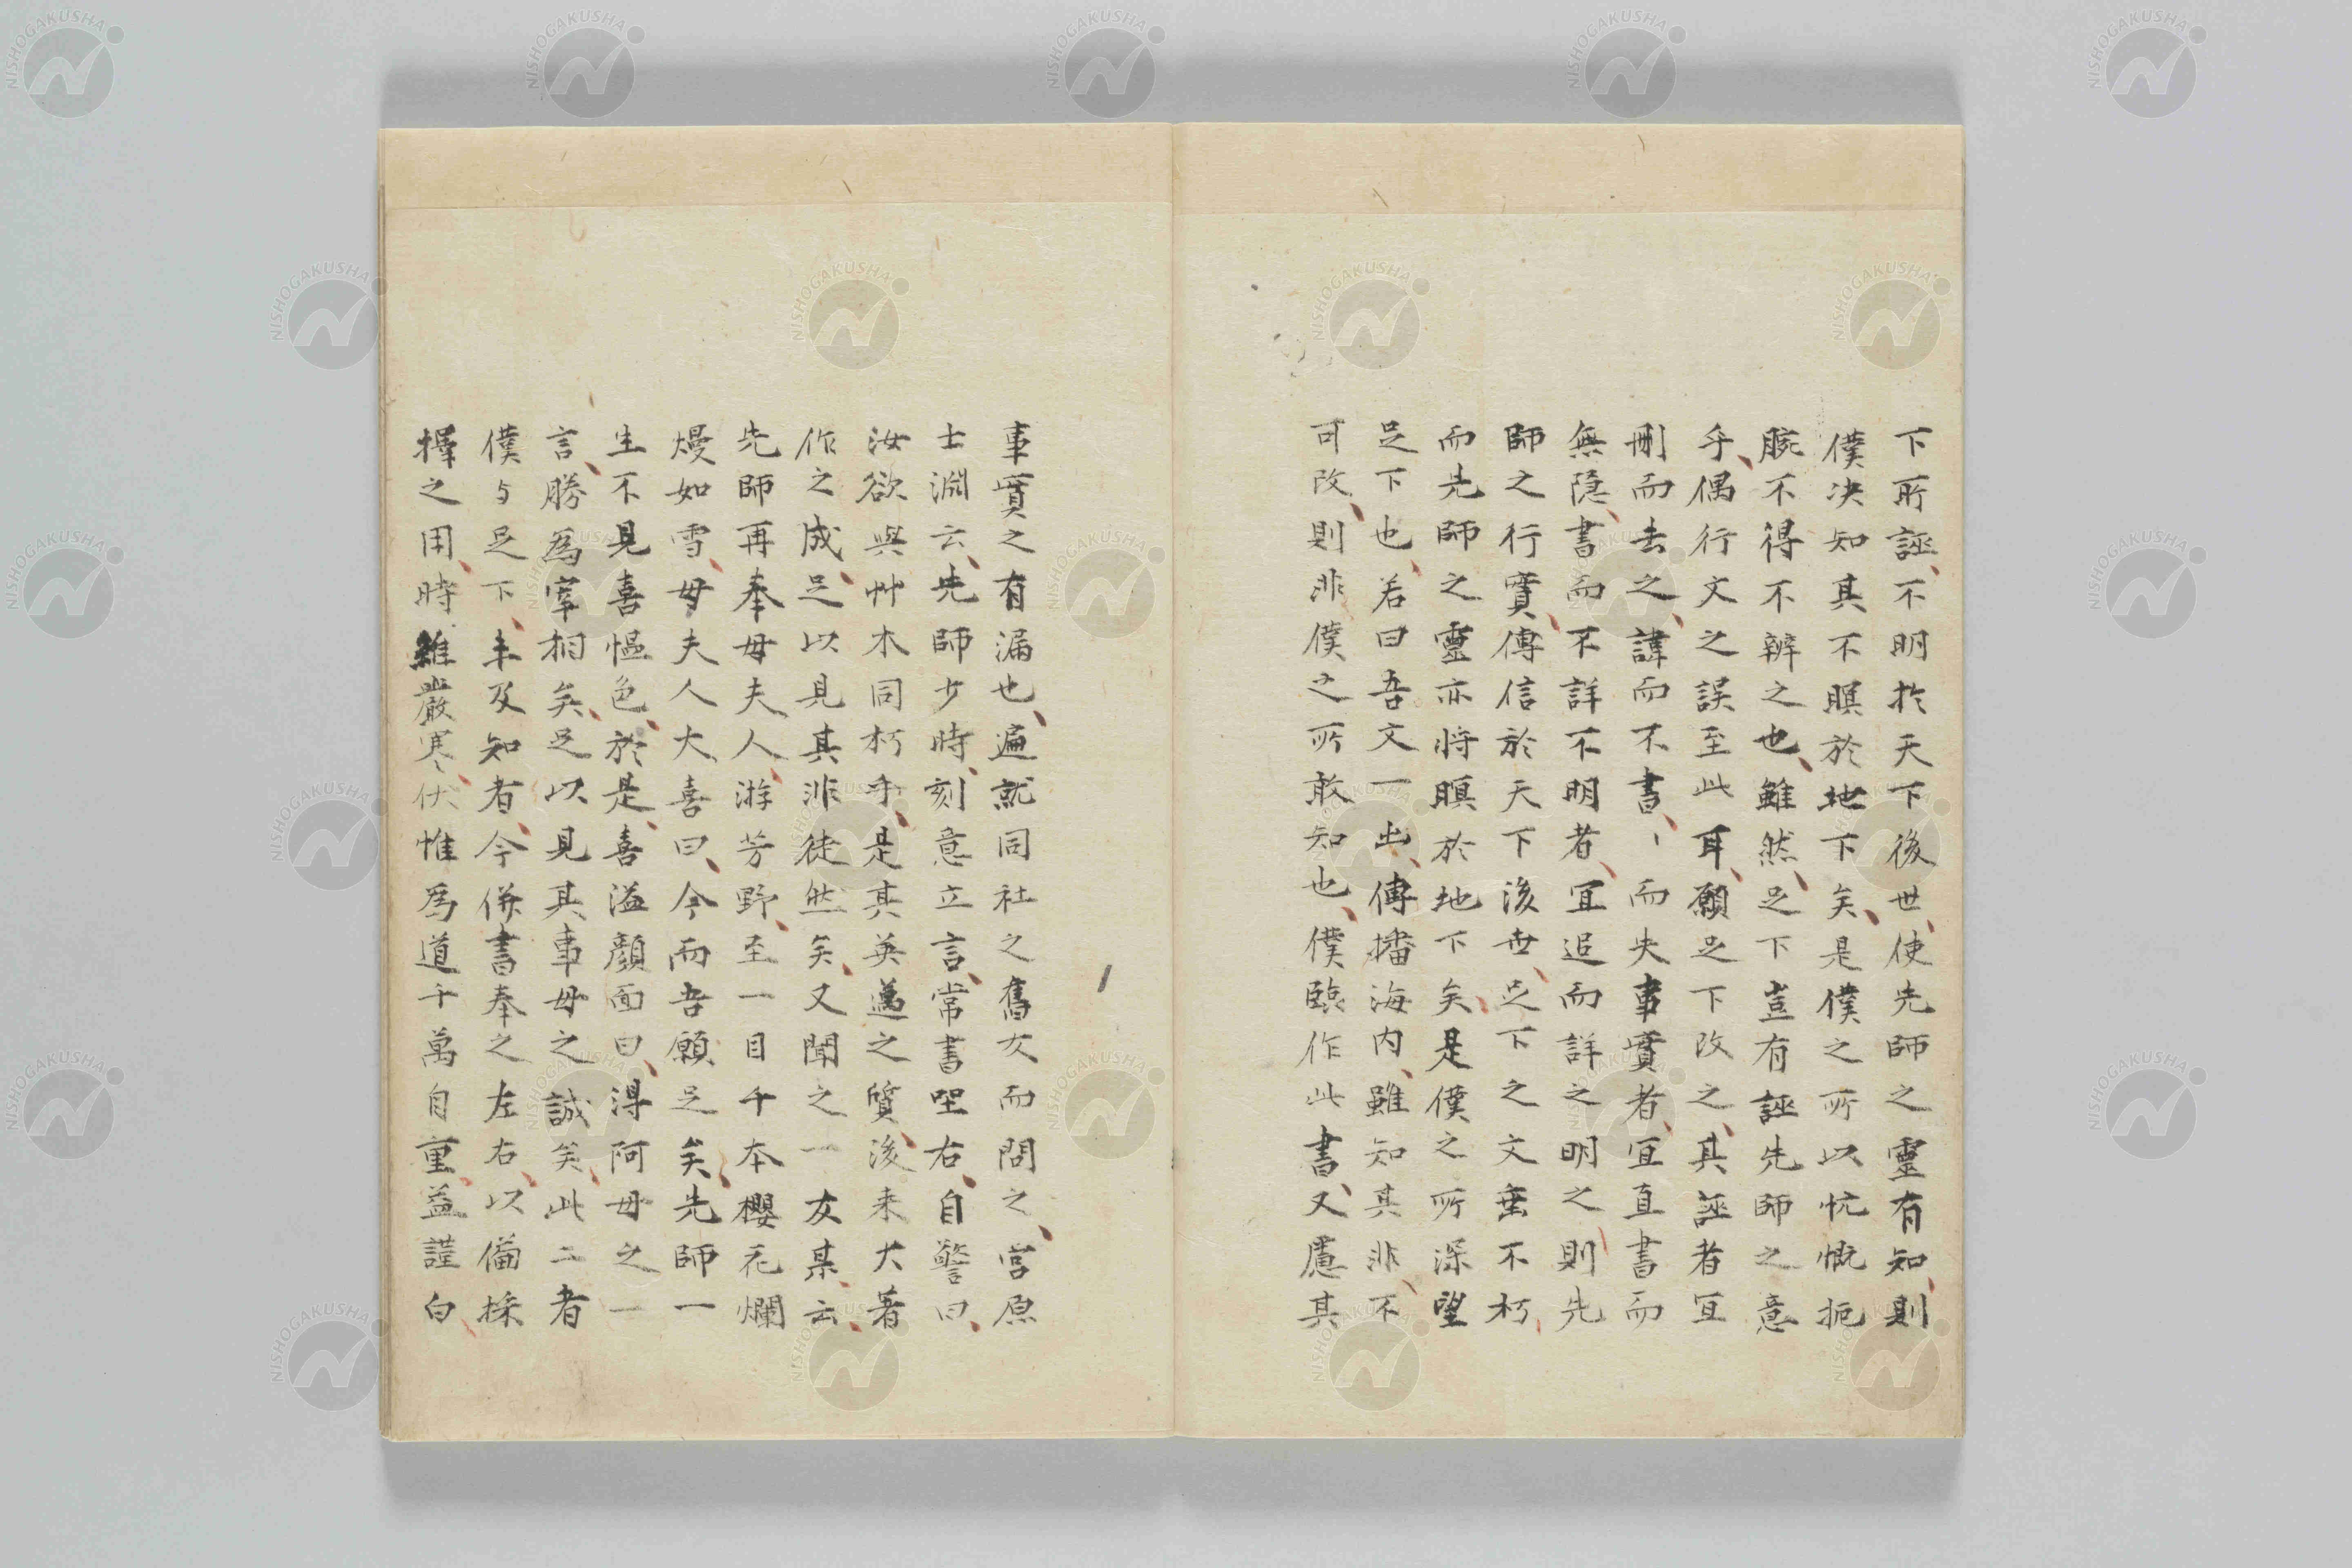 下所誣不明於天下後世使先師之靈有知則
僕决知其不瞑於地下矣是僕之所以忼慨扼
腕不得不辨之也雖然足下豈有誣先師之意
乎偶行文之誤至此耳願足下改之其誣者宜
刪而去之諱而不書〻而失事實者宜直書而
無隱書而不詳不明者宜追而詳之明之則先
師之行實傳信於天下後世足下之文垂不朽
而先師之靈亦將瞑於地下矣是僕之所深望
足下也若曰吾文一出傳播海内雖知其非不
可改則非僕之所敢知也僕臨作此書又慮其
事實之有漏也遍就同社之舊友而問之宮原
士淵云先師少時刻意立言常書坐右自警曰
汝欲與艸木同朽乎是其英邁之質後来大著
作之成足以見其非徒然矣又聞之一友某云
先師再奉母夫人游芳野至一目千本櫻花爛
熳如雪母夫人大喜曰今而吾願足矣先師一
生不見喜慍色於是喜溢顏面曰得阿母之一
言勝為宰相矣足以見其事母之誠矣此二者
僕与足下未及知者今併書奉之左右以備採
擇之用時雖嚴寒伏惟為道千萬自重益謹白
NISHOGAKUSHA